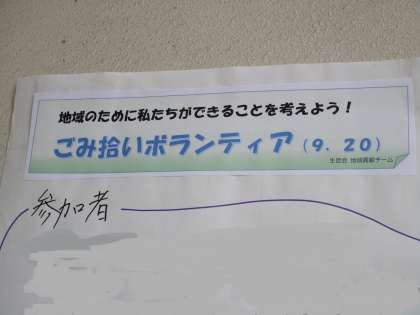 地域のために私たちができることを考えよう！
ごみ拾いボランティア（9．20）
生徒会 地域貢献チーム
参加者